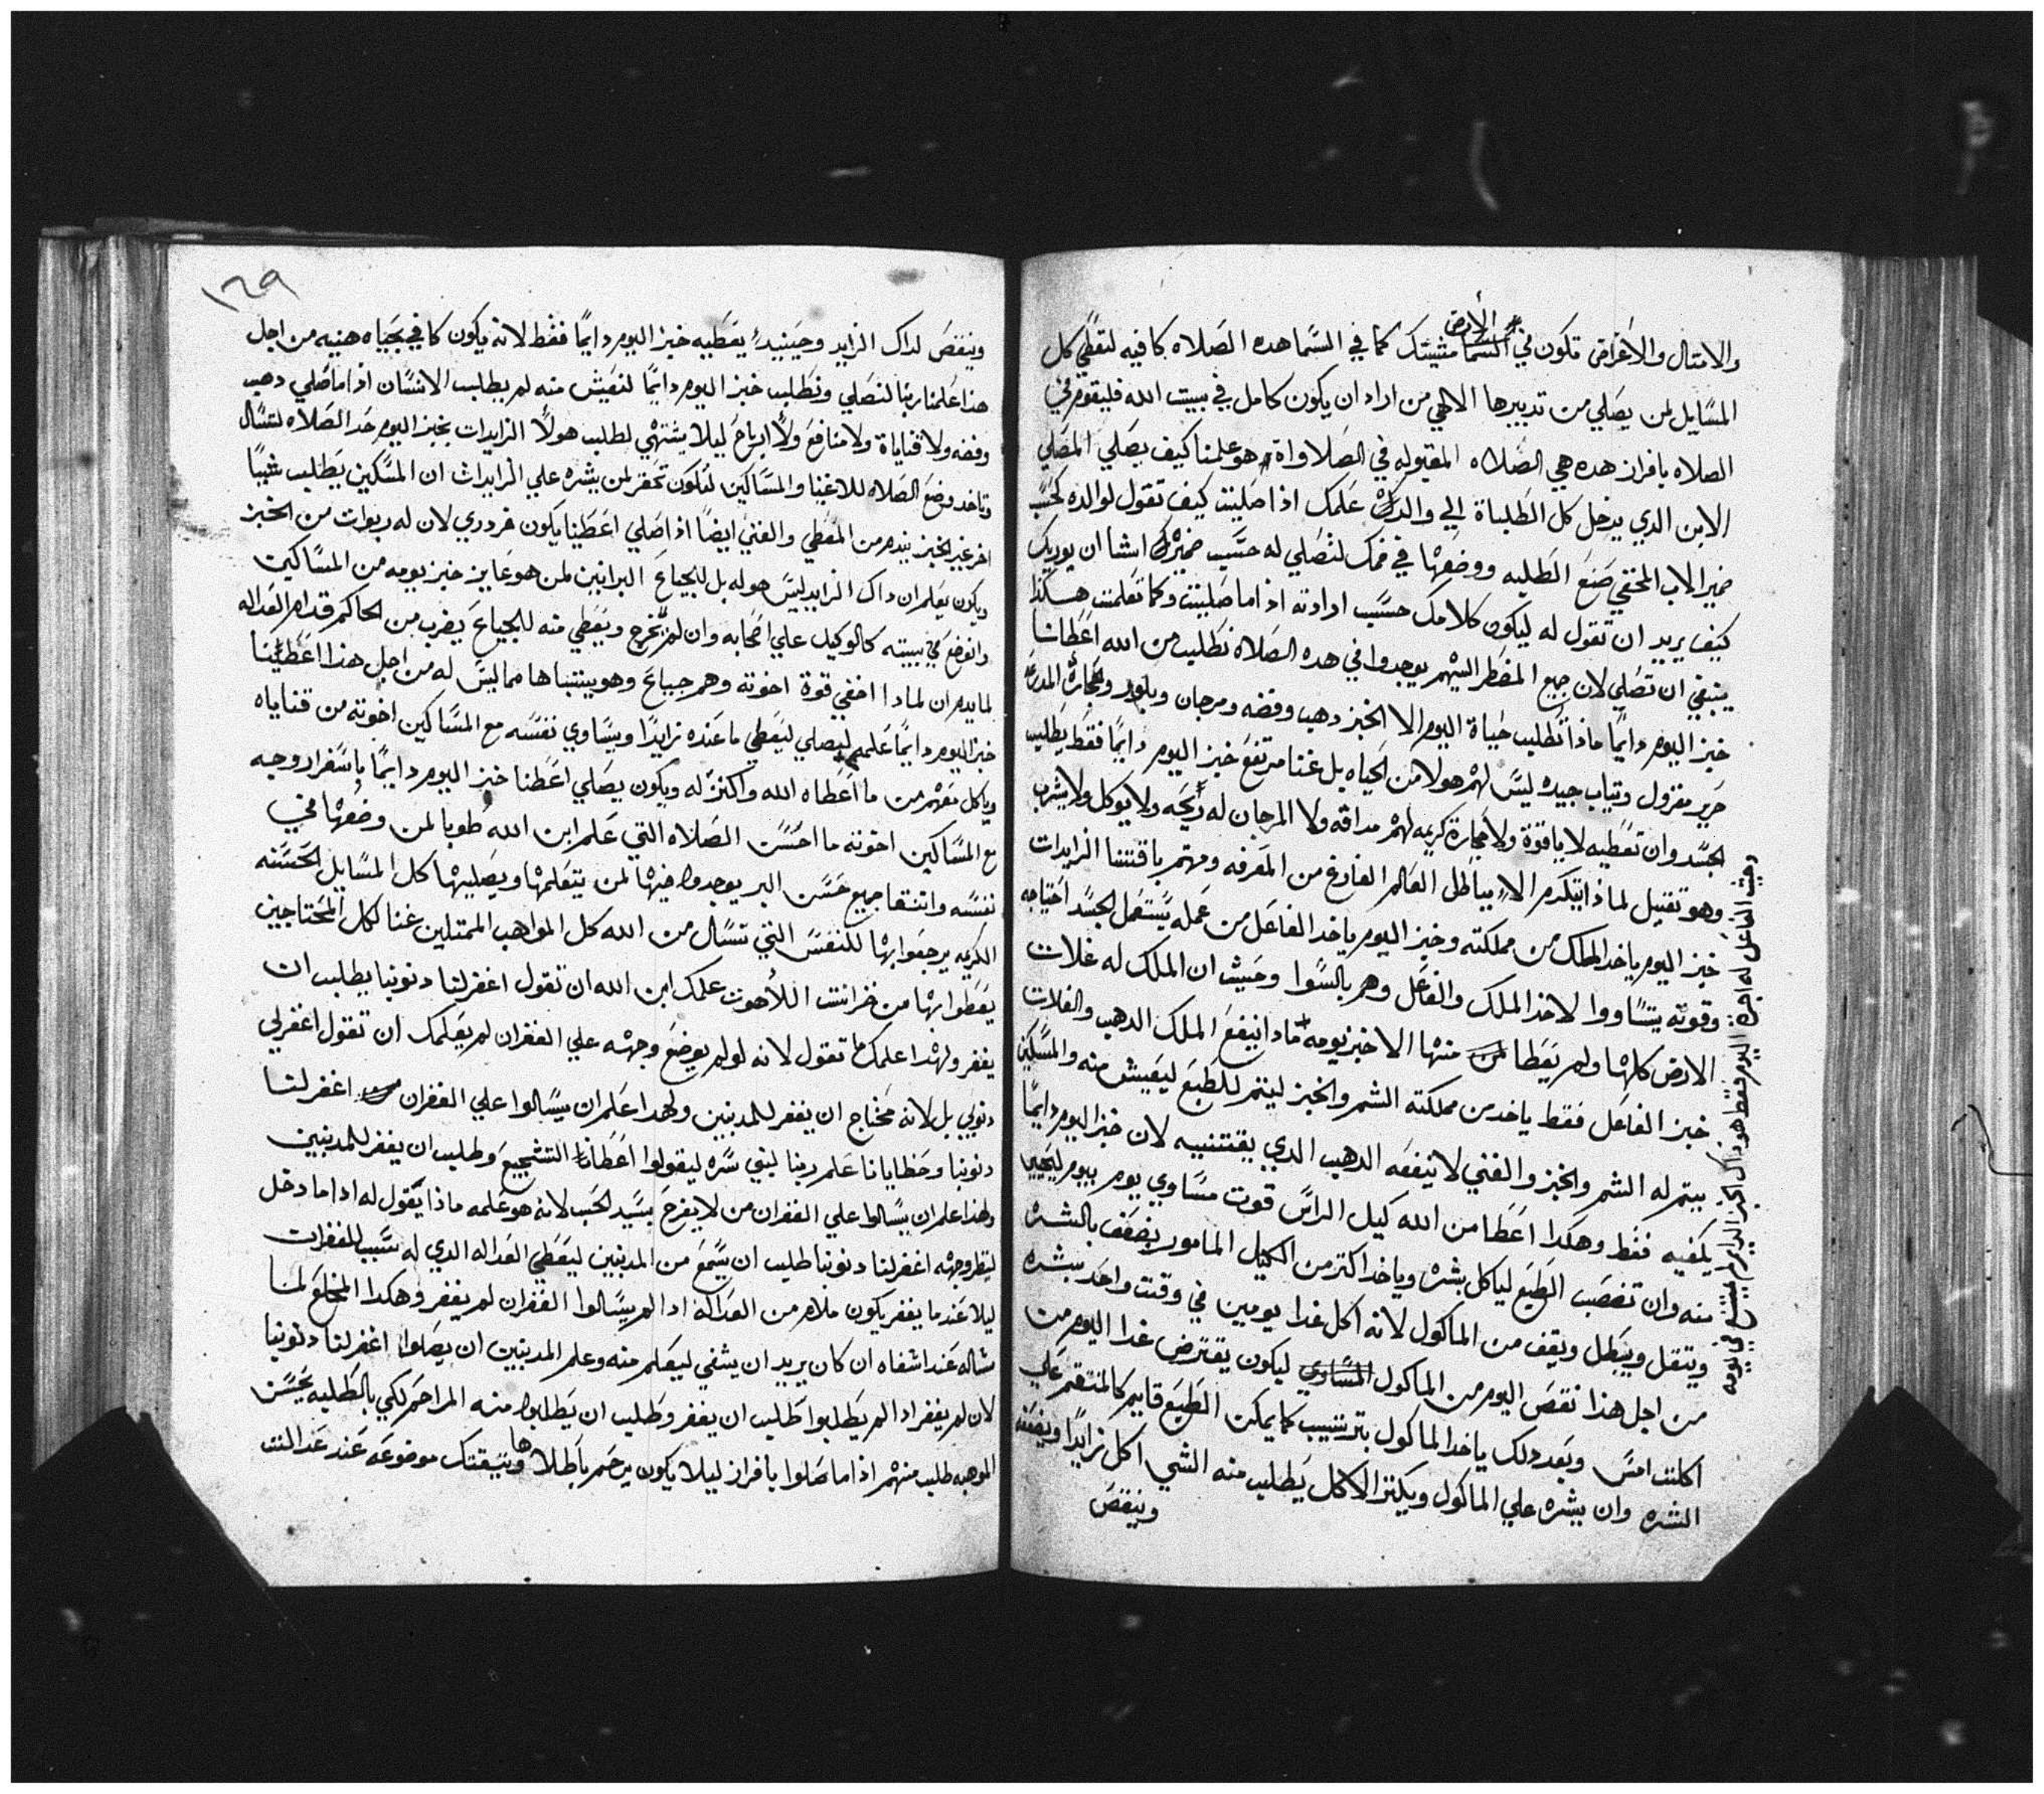 والامتال والاغراض تكون في السما الأرض مشيتك كما في السما هده الصلاه كافيه لتعطي كل
المسايل لمن يصلي من تدبيرها الالاهي من اراد ان يكون كامل في بييت الله فليقوم في
الصلاه بافراز هده هي الصلاه المقبوله في الصلاواة هو علمنا كيف يصلي المصلي
الابن الدي يدخل كل الطلباة الي والده علمك اذا صليت كيف تقول لوالده كحسب
ضمير الاب المخفي صنع الطلبه ووضعها في فمك لتصلي له حسب ضميره اشا ان يوريك
كيف يريد ان تقول له ليكون كلامك حسب ارادته اذ اما صليت وكما تعلمت هكذا
ينبغي ان تصلي لان جميع المضطر اليهم يوجدوا في هده الصلاة نطلب من الله اعطانا
خبز اليوم دايمًا ماذا تطلب حياة اليوم الا الخبز دهب وفضه ومرجان وبلور وحجارة
حرير مغزول وتياب جيده ليس لهم هولا من الحياه بل غنا مرتفع خبز اليوم دايمًا فقط يطلب
الجسد وان تعطيه لا ياقوتة ولا حجارة كريمه لهم مداقه ولا المرجان له ريحه ولا يوكل ولا يشرب
وهو تقيل لماذا يتكرم الا بباطل العالم الفارغ من المعرفه ومهتم باقتنا الزايدات
خبز اليوم ياخد الملك من مملكته وخبز اليوم ياخد الفاعل من عمله يستعمل الجسد احتياجه
وقوته يتساووا لاخد الملك والفاعل وهم بالسوا وحيث ان الملك له غلات
الارض كلها ولم يعطا منها الا خبز يومه مادا ينفع الملك الدهب والغلات
خبز الفاعل فقط ياخد من مملكته الشم والخبز ليتم للطبع ليعيش منه والمسكين
يتم له الشم والخبز والغني لا ينفعه الدهب الدي يقتنيه لان خبز اليوم دايمًا
يكفيه فقط وهكدا اعطا من الله كيل الراس قوت مساوي يوم بيوم ليحيا
منه وان تغصب الطبع لياكل بشره وياخد اكتر من الكيل المامور يضعف بالشره
ويتقل ويبطل ويقف من الماكول لانه اكل غدا يومين في وقت واحد بشره
من اجل هذا نقص اليوم من الماكول المساوي ليكون يقترض غدا اليوم من
اكلت امس وبعد دلك ياخد الماكول بترتييب كما يمكن الطبع قايم كالمنتقم علي
الشره وان يشره علي الماكول ويكتر الاكل يطلب منه الشي اكل زايدًا ويعفنه
وينقص
وحيث الفاعل له اجرة اليوم فقط هو داك الخبز الدايم يعيش في يومه
١٦٩
وينقص لداك الزايد وحينيدٍ يعطيه خبز اليوم دايمًا فقط لانه يكون كافي بحياه هنيه من اجل
هذا علمنا ربنا لنصلي ونطلب خبز اليوم دايمًا لنعيش منه لم يطلب الانسان اذ اما صلي دهب
وفضه ولا قناياة ولا منافع ولا ارباح ليلا يشتهي لطلب هولا الزايدات بخبز اليوم حد الصلاه لتسال
وتاخد وضع الصلاه للاغنيا والمساكين لتكون تحقر لمن يشره علي الزايدات ان المسكين يطلب شييًا
اخر غير الخبز يندم من المعطي والغني ايضًا اذ اصلي اعطينا يكون ضروري لان له ربوات من الخبز
ويكون يعلم ان داك الزايد ليس هو له بل للجياع البرانيين لمن هو عايز خبز يومه من المساكين
وانوضع في بييته كالوكيل علي اصحابه وان لم يخرج ويعطي منه للجياع يضرب من الحاكم قدام العداله
لما يدم ان لمادا اخفي قوة اخوته وهم جياع وهو يتباها مما ليس له من اجل هذا اعطينا
خبز اليوم دايمًا علمهم ليصلي ليعطي ما عنده زايدًا ويساوي نفسه مع المساكين اخوته من قناياه
وياكل معهم من ما اعطاه الله واكنزله ويكون يصلي اعطنا خبز اليوم دايمًا باسفرار وجه
مع المساكين اخوته ما احسن الصلاه التي علم ابن الله طوبا لمن وضعها في
نفسه واتنقا جميع حسن البر يوجدوا فيها لمن يتعلمها ويصليها كل المسايل الحسنه
الكريمه يرجعوا بها للنفس التي تسال من الله كل المواهب الممتلين غنا لكل المحتاجين
يعطوا بها من خزانت اللاهوت علمك ابن الله ان تقول اغفر لنا دنوبنا يطلب ان
يغفر ولهدا علمك ما تقول لانه لو لم يوضع وجهه علي الغفران لم يعلمك ان تقول اغفر لي
دنوبي بل لانه محتاج ان يغفر للمدنبين ولهدا علم ان يسالوا علي الغفران اغفر لنا
دنوبنا وخطايانا علم ربنا لبني سره ليقولوا اعطانا التشجيع وطلب ان يغفر للمدنبين
ولهذا علم ان يسالوا علي الغفران من لا يفرح بسيد الحسب لانه هو علمه ماذا يقول له اداما دخل
لينظر وجهه اغفر لنا دنوبنا طلب ان يسمع من المدنبين ليعطي العداله الدي له سبب للغفران
ليلا عند ما يغفر يكون ملام من العدالة ادا لم يسالوا الغفران لم يغفر وهكدا المخلع لمنا
مثاله عند اشفاه ان كان يريد ان يشفي ليعلم منه وعلم المدنبين ان يصلوا اغفر لنا دنوبنا
لان لم يغفر ادا لم يطلبوا طلب ان يغفر وطلب ان يطلبوا منه المراحم لكي بالطلبه يحسن
الموهبه طلب منهم اذ اما صلوا بافراز ليلا يكون يرحم باطلا ها وتيقتك موضوعه عند عدالت